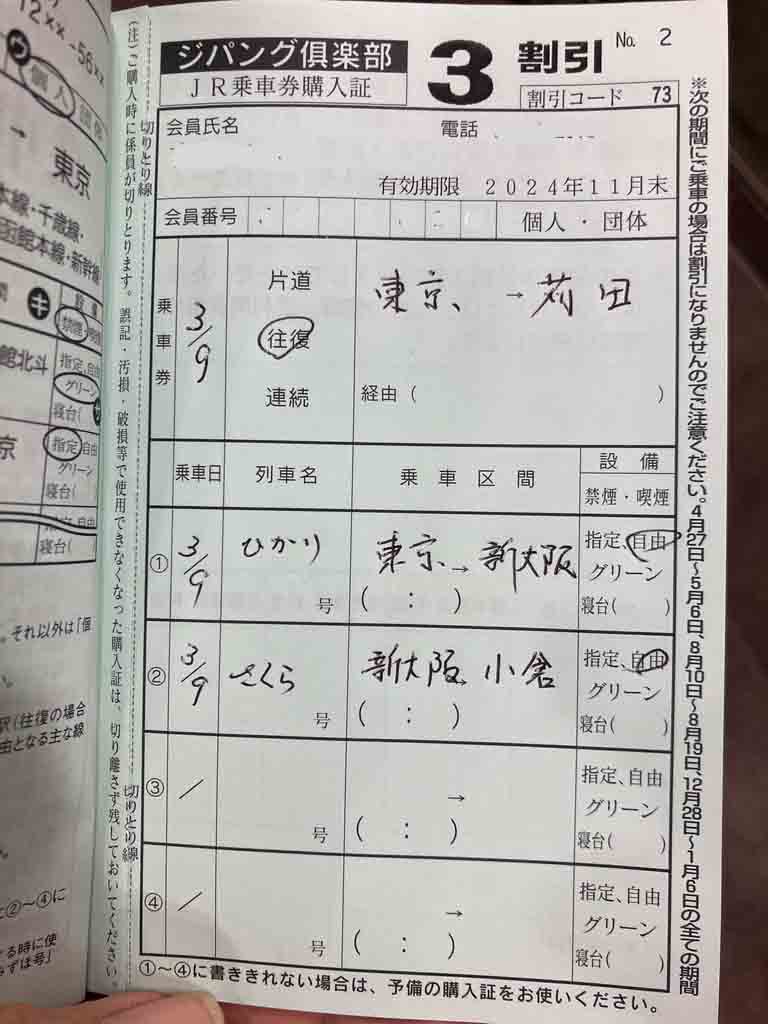 ジパング倶楽部
JR乗車券購入証
3割引
No. 2
割引コード 73
会員氏名
電話
有効期限 2024年11月末
会員番号
個人・団体
乗車券
3/9
片道
往復
連続
東京 → 苅田
経由( )
乗車日 列車名 乗車区間 設備
禁煙・喫煙
① 3/9 ひかり 号 東京 → 新大阪 ( : )
指定、自由
グリーン
寝台( )
② 3/9 さくら 号 新大阪 → 小倉 ( : )
指定、自由
グリーン
寝台( )
③ / 号 → ( : )
指定、自由
グリーン
寝台( )
④ / 号 → ( : )
指定、自由
グリーン
寝台( )
①～④に書ききれない場合は、予備の購入証をお使いください。
※次の期間にご乗車の場合は割引になりませんのでご注意ください。4月27日～5月6日、8月10日～8月19日、12月28日～1月6日の全ての期間
切りとり線
切りとり線
(注)ご購入時に係員が切りとります。誤記・汚損・破損等で使用できなくなった購入証は、切り離さず残しておいてください。
12××-56××
ウ
個人 団体
→ 東京
本線・千歳線・
函館本線・新幹線
キ
設備
禁煙
館北斗
指定、自由
グリーン
寝台(
京
指定、自由
グリーン
寝台(
指定、自由
寝台(
。それ以外は「個
駅(往復の場合
由となる主な線
②～④に
る時に使